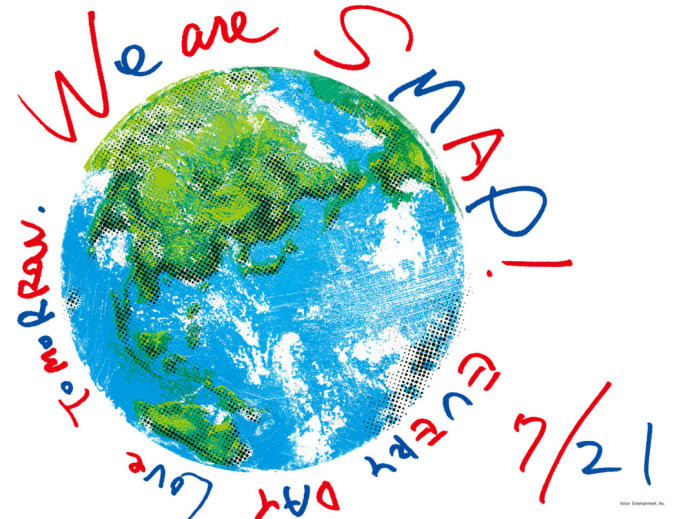 We are SMAP!
EVERY DAY LOVE TOMORROW.
7/21
Victor Entertainment, Inc.